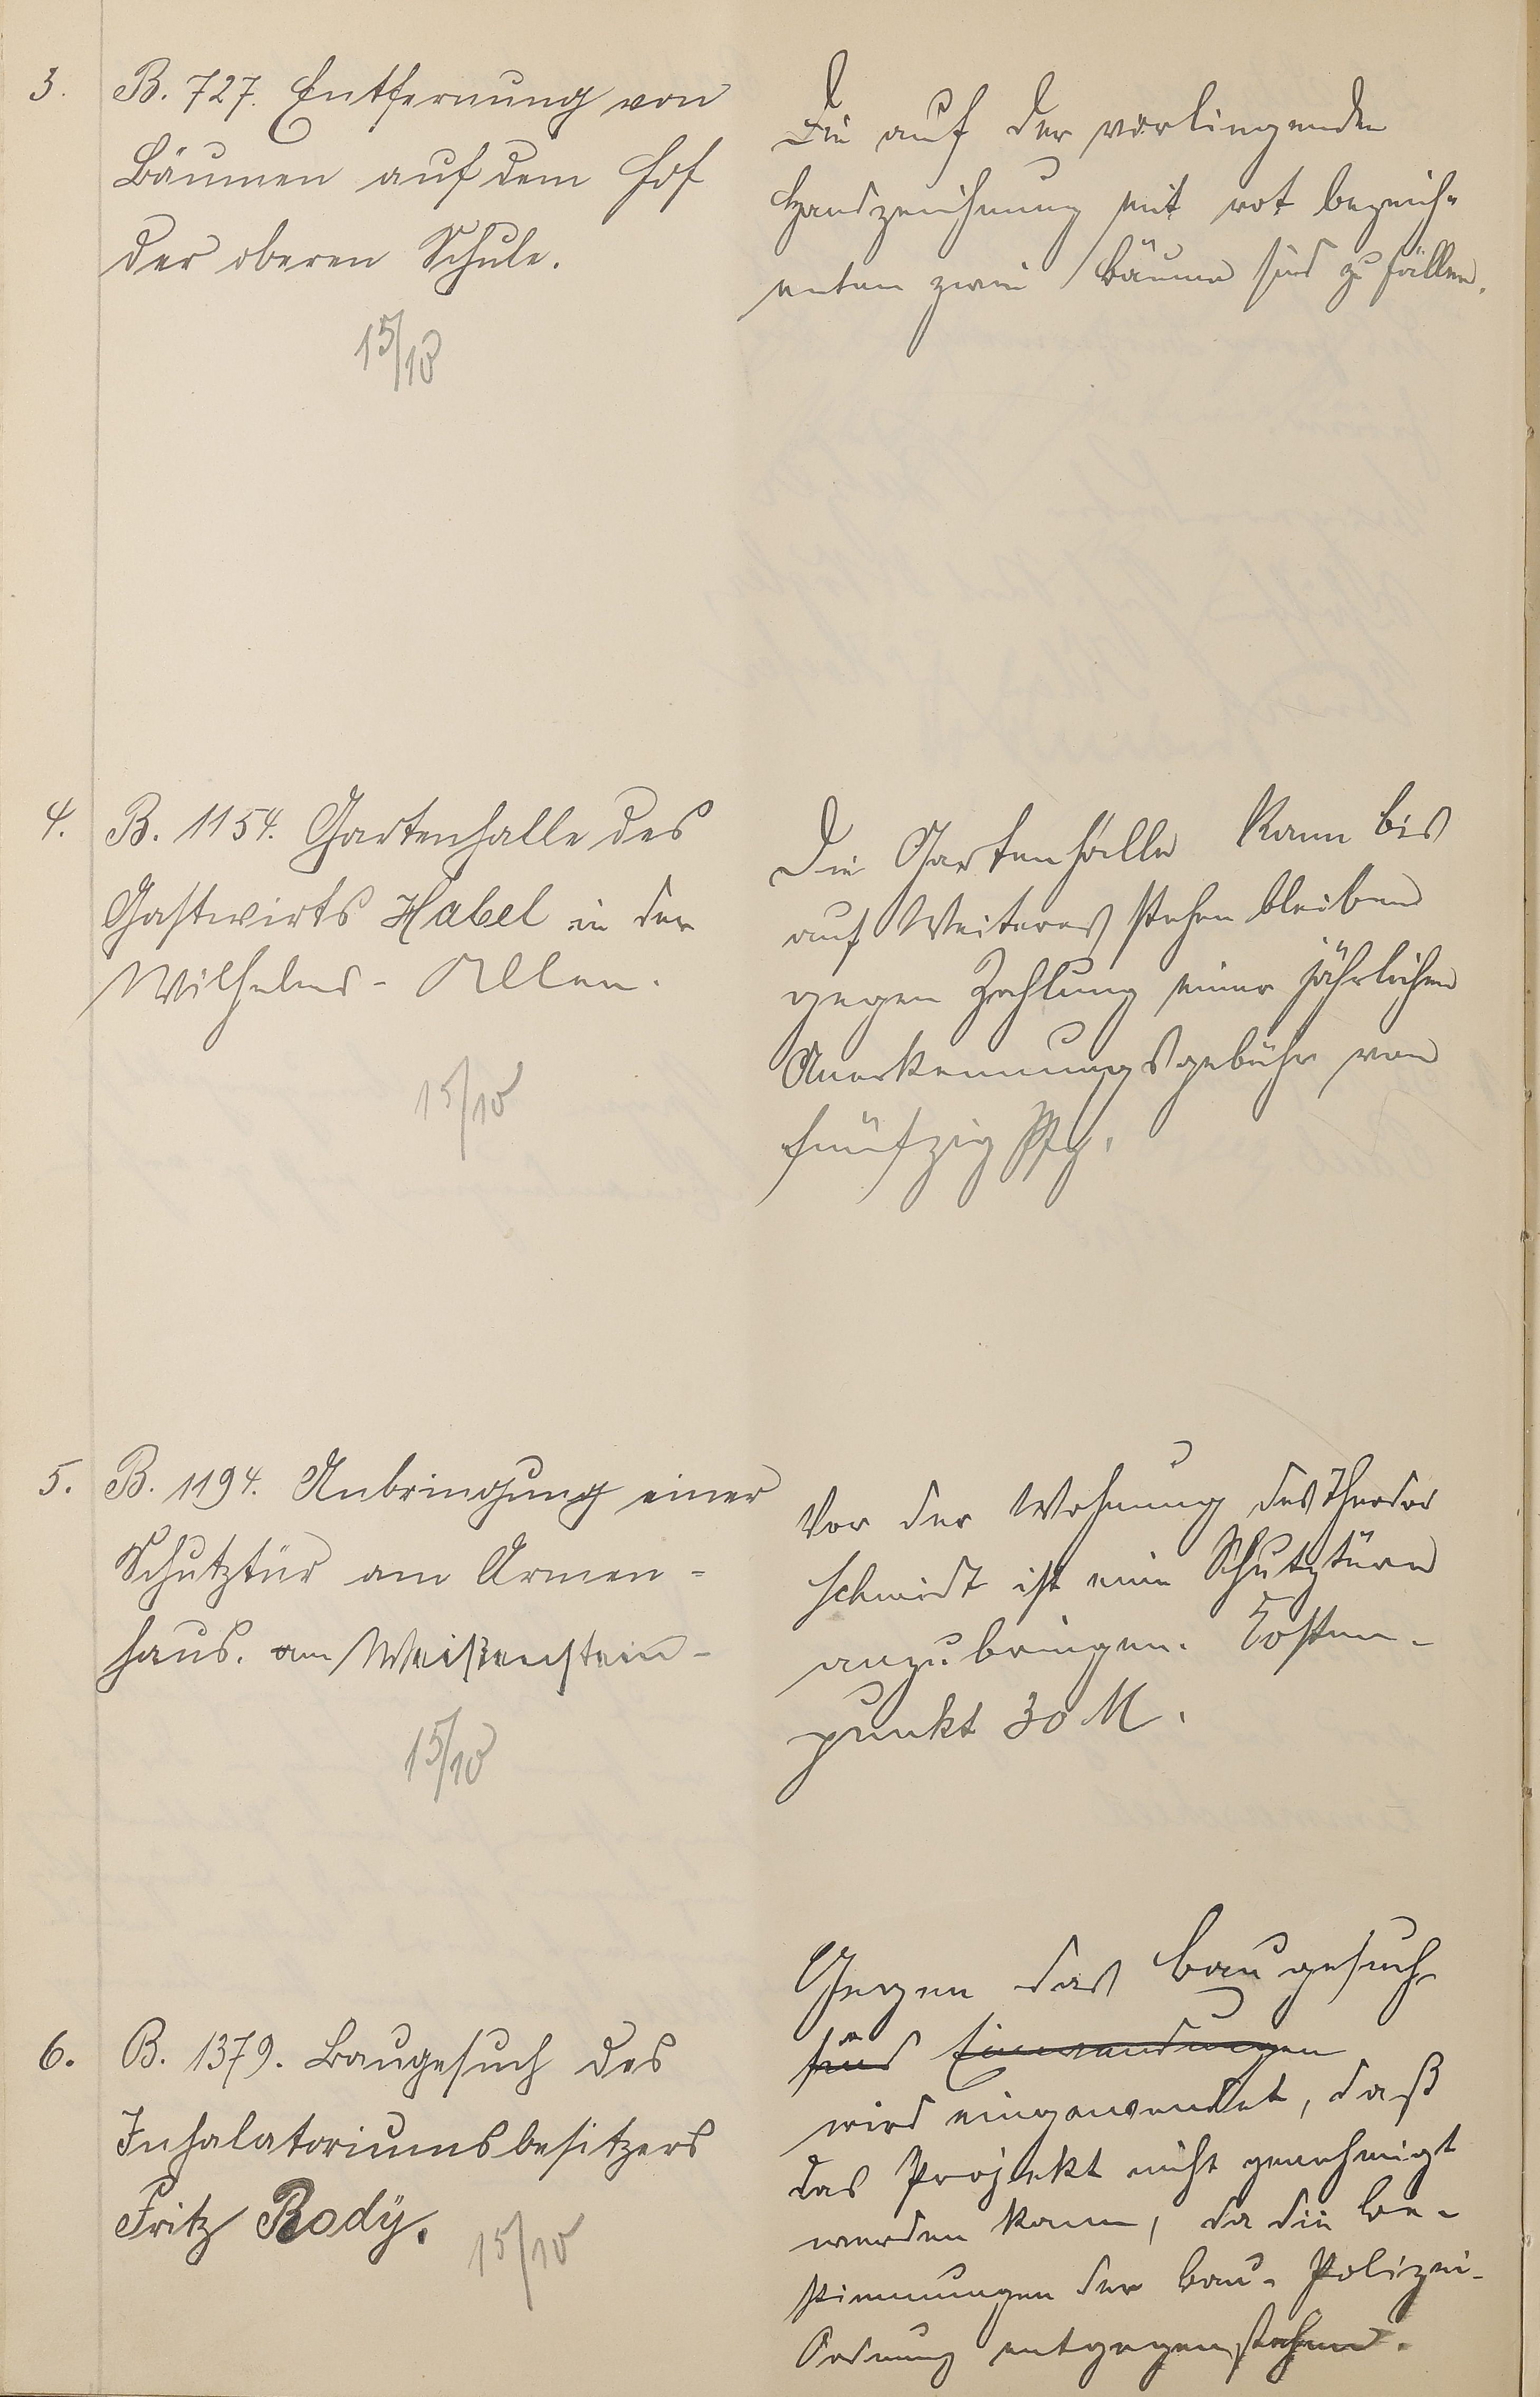 3.
B. 727. Entfernung von
Bäumen auf dem Hof
der oberen Schule.
15/10
Die auf der vorliegenden
Handzeichnung mit rot bezeich-
neten zwei Bäume sind zu fällen.
4.
B. 1154. Gartenhalle des
Gastwirts Habel in der
Wilhelms-Allee.
15/10
Die Gartenhalle kann bis
auf Weiteres stehen bleiben
gegen Zahlung einer jährlichen
Anerkennungsgebühr von
fünfzig Pfg.
5.
B. 1194. Anbringung einer
Schutztür am Armen-
haus. am Weißenstein-
15/10
Vor der Wohnung des Theodor
Schmidt ist eine Schutztüre
anzubringen. Kosten-
punkt 30 M.
6.
B. 1379. Baugesuch des
Inhalatoriumsbesitzers
Fritz Body.
15/10
Gegen das Baugesuch
sind Einwendungen
wird eingewendet, daß
das Projekt nicht genehmigt
werden kann, da die Be-
stimmungen der Bau-Polizei-
Ordnung entgegenstehen.